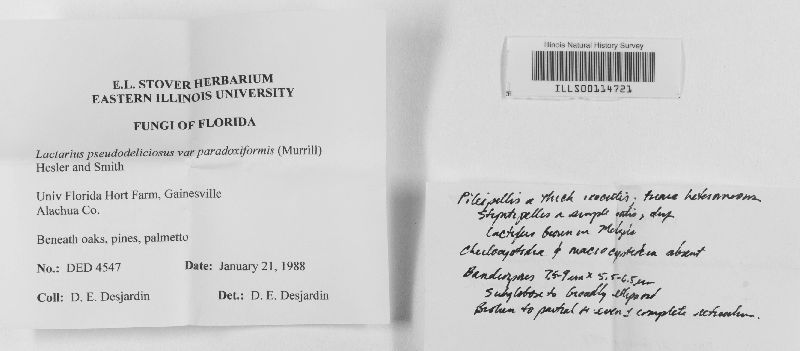 E.L. STOVER HERBARIUM
EASTERN ILLINOIS UNIVERSITY
FUNGI OF FLORIDA
Lactarius pseudodeliciosus var paradoxiformis (Murrill)
Hesler and Smith
Univ Florida Hort Farm, Gainesville
Alachua Co.
Beneath oaks, pines, palmetto
No.: DED 4547 Date: January 21, 1988
Coll: D. E. Desjardin Det.: D. E. Desjardin
Illinois Natural History Survey
ILLS00114721
Pileipellis a thick ixocutis; trama heteromerous
Stipitipellis a simple cutis, dry
lactifers brown in Melzer's
Cheilocystidia & macrocystidia absent
Basidiospores 7.5-9 µm x 5.5-6.5 µm
Subglobose to broadly ellipsoid
Broken to partial to even ± complete reticulum.